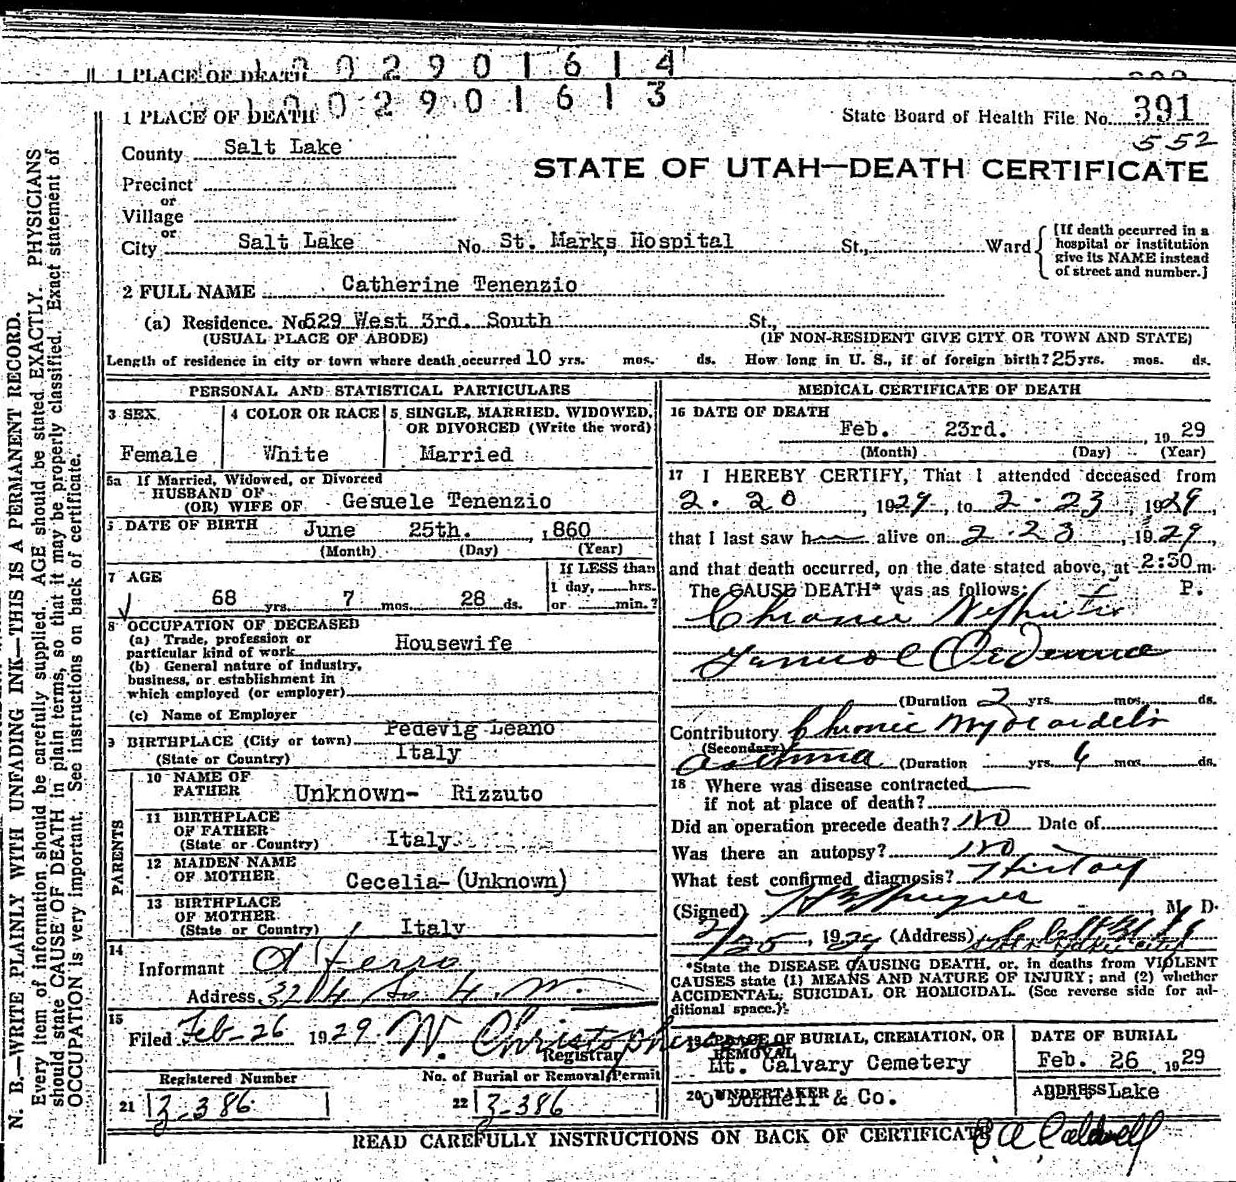 1 PLACE OF DEATH 0 0 2 9 0 1 6 1 4
1 PLACE OF DEATH 0 0 2 9 0 1 6 1 3
State Board of Health File No. 391
552
County Salt Lake
STATE OF UTAH—DEATH CERTIFICATE
Precinct
or
Village
or
City Salt Lake No. St. Marks Hospital St., Ward
[If death occurred in a
hospital or institution
give its NAME instead
of street and number.]
2 FULL NAME Catherine Tenenzio
(a) Residence. No. 529 West 3rd. South St.,
(USUAL PLACE OF ABODE) (IF NON-RESIDENT GIVE CITY OR TOWN AND STATE)
Length of residence in city or town where death occurred 10 yrs. mos. ds. How long in U. S., if of foreign birth? 25 yrs. mos. ds.
PERSONAL AND STATISTICAL PARTICULARS
3 SEX 4 COLOR OR RACE 5 SINGLE, MARRIED, WIDOWED,
OR DIVORCED (Write the word)
Female White Married
5a If Married, Widowed, or Divorced
HUSBAND OF
(OR) WIFE OF Gesuele Tenenzio
6 DATE OF BIRTH June 25th. , 1860
(Month) (Day) (Year)
7 AGE
68 yrs. 7 mos. 28 ds.
If LESS than
1 day, hrs.
or min.?
8 OCCUPATION OF DECEASED
(a) Trade, profession or
particular kind of work Housewife
(b) General nature of industry,
business, or establishment in
which employed (or employer)
(c) Name of Employer
9 BIRTHPLACE (City or town) Pedevig Leano
(State or Country) Italy
PARENTS
10 NAME OF
FATHER Unknown- Rizzuto
11 BIRTHPLACE
OF FATHER
(State or Country) Italy
12 MAIDEN NAME
OF MOTHER Cecelia-(Unknown)
13 BIRTHPLACE
OF MOTHER
(State or Country) Italy
14
Informant Ferro
Address 324 So 4 W.
15
Filed Feb-26 1929 W. Christopherson
Registrar
Registered Number No. of Burial or Removal Permit
21 3-386 22 3-386
MEDICAL CERTIFICATE OF DEATH
16 DATE OF DEATH
Feb. 23rd. , 19 29
(Month) (Day) (Year)
17 I HEREBY CERTIFY, That I attended deceased from
2. 20 , 1929, to 2. 23 , 1929,
that I last saw h alive on 2.23 , 1929
and that death occurred, on the date stated above, at 2:30 m.
The CAUSE DEATH* was as follows: P.
Chronic Nephritis
General Oedema
(Duration 2 yrs. mos. ds.
Contributory Chronic Myocarditis
(Secondary)
asthma (Duration yrs. 6 mos. ds.
18 Where was disease contracted
if not at place of death?
Did an operation precede death? no Date of
Was there an autopsy? no
What test confirmed diagnosis? History
(Signed) M. D.
2/25, 1929 (Address)
*State the DISEASE CAUSING DEATH, or, in deaths from VIOLENT
CAUSES state (1) MEANS AND NATURE OF INJURY; and (2) whether
ACCIDENTAL, SUICIDAL OR HOMICIDAL. (See reverse side for ad-
ditional space.)
19 PLACE OF BURIAL, CREMATION, OR
REMOVAL
Mt. Calvary Cemetery
DATE OF BURIAL
Feb. 26 , 19 29
20 UNDERTAKER O'Donnell & Co.
ADDRESS Salt Lake
READ CAREFULLY INSTRUCTIONS ON BACK OF CERTIFICATE
C. A. Caldwell
N. B.—WRITE PLAINLY WITH UNFADING INK—THIS IS A PERMANENT RECORD.
Every item of information should be carefully supplied. AGE should be stated EXACTLY. PHYSICIANS
should state CAUSE OF DEATH in plain terms, so that it may be properly classified. Exact statement of
OCCUPATION is very important. See instructions on back of certificate.